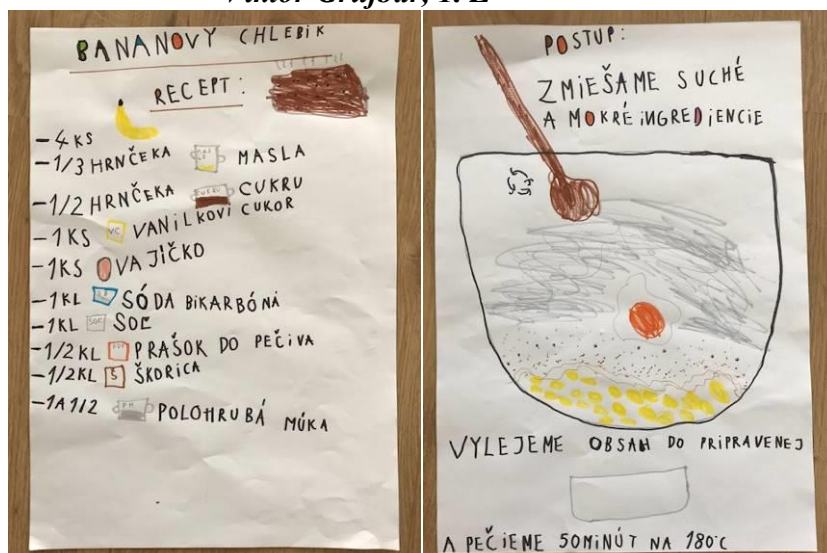 BANANOVÝ CHLEBÍK
RECEPT:
-4 KS
-1/3 HRNČEKA MASLA
-1/2 HRNČEKA CUKRU CUKRU
-1KS VC VANILKOVÍ CUKOR
-1KS VAJÍČKO
-1KL SÓDA BIKARBÓNA
-1KL SOĽ SOĽ
-1/2 KL PRÁŠOK DO PEČIVA
-1/2KL Š ŠKORICA
-1A 1/2 PM POLOHRUBÁ MÚKA
POSTUP:
ZMIEŠAME SUCHÉ
A MOKRÉ INGREDIENCIE
VYLEJEME OBSAH DO PRIPRAVENEJ
A PEČIEME 50MINÚT NA 180°C